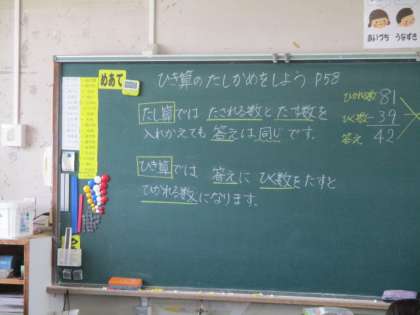 めあて
ひき算のたしかめをしよう P58
たし算では たされる数と たす数を
入れかえても 答えは 同じ です。
ひき算では 答えに ひく数をたすと
ひかれる数になります。
ひかれる数 81
ひく数 -39
答え 42
あいづち うなずき